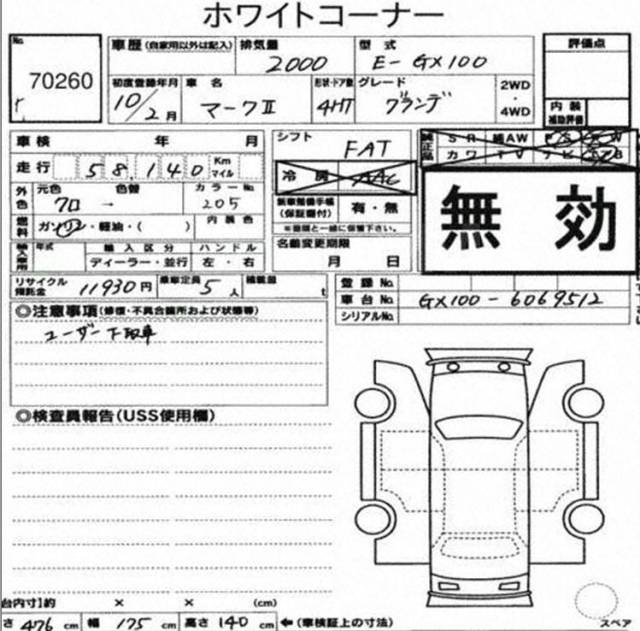 ホワイトコーナー
No.
70260
車歴 (自家用以外は記入)
排気量 2000
型式 E-GX100
評価点
初度登録年月 10年/2月
車名 マークⅡ
形状・ドア数 4HT
グレード グランデ
2WD・4WD
内装補助評価
車検 年 月
シフト FAT
純正品 SR 純AW PS PW
カワ TV ナビ
走行 58,140 Km マイル
冷房 AAC
無効
外色 元色 クロ → 色替
カラーNo. 205
新車整備手帳(保証書付) 有・無
※登録と一緒に保管下さい。
燃料 ガソリン・軽油・( )
内装色
名義変更期限
月 日
輸入車用 年式 輸入区分 ハンドル
ディーラー・並行 左・右
リサイクル預託金 11930円
乗車定員 5人
積載量 t
登録No.
車台No. GX100-6069512
シリアルNo.
◎注意事項(修復・不具合箇所および状態等)
ユーザー下取車
◎検査員報告(USS使用欄)
台内寸 約 × × (cm)
さ 476 cm 幅 175 cm 高さ 140 cm ←(車検証上の寸法)
スペア